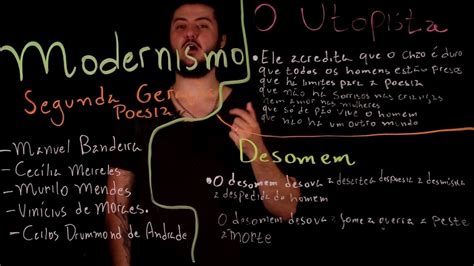 Modernismo
Segunda
Poesia
- Manuel Bandeira
- Cecília Meireles
- Murilo Mendes
- Vinícius de Moraes.
- Carlos Drummond de Andrade
O Utopista
• Ele acredita que o chão é duro
que todos os homens estão presos
que há limites para a poesia
que não há sorrisos nas crianças
nem amor nas mulheres
que só de pão vive o homem
que não há um outro mundo
Desomem
• O desomem desova a
a despedida do homem
O desomem desova a fome a guerra a peste
a morte